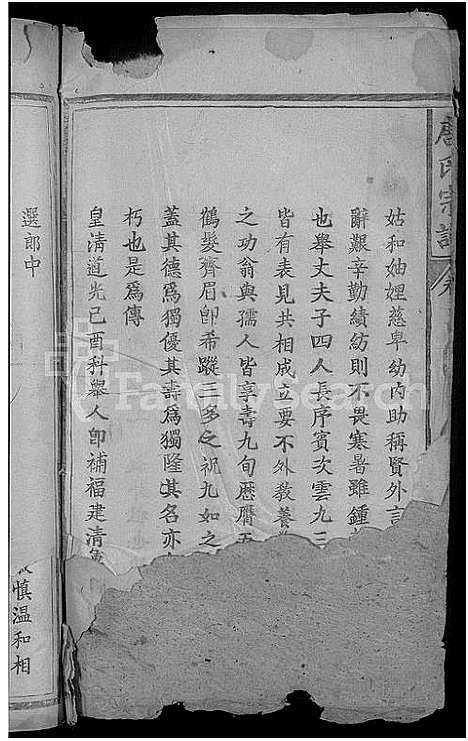 唐氏宗譜
姑和妯娌慈卑幼內助稱賢外言
辭艱辛勤績紡則不畏寒暑雖鍾
也舉丈夫子四人長序賓次雲九三
皆有表見共相成立要不外教養
之功翁與孺人皆享壽九旬歷膺五
鶴髮齊眉卽希蹤三多之祝九如之
蓋其德爲獨優其壽爲獨隆其名亦
朽也是爲傳
皇清道光己酉科舉人卽補福建清
選郎中
慎温和相
FamilySearch